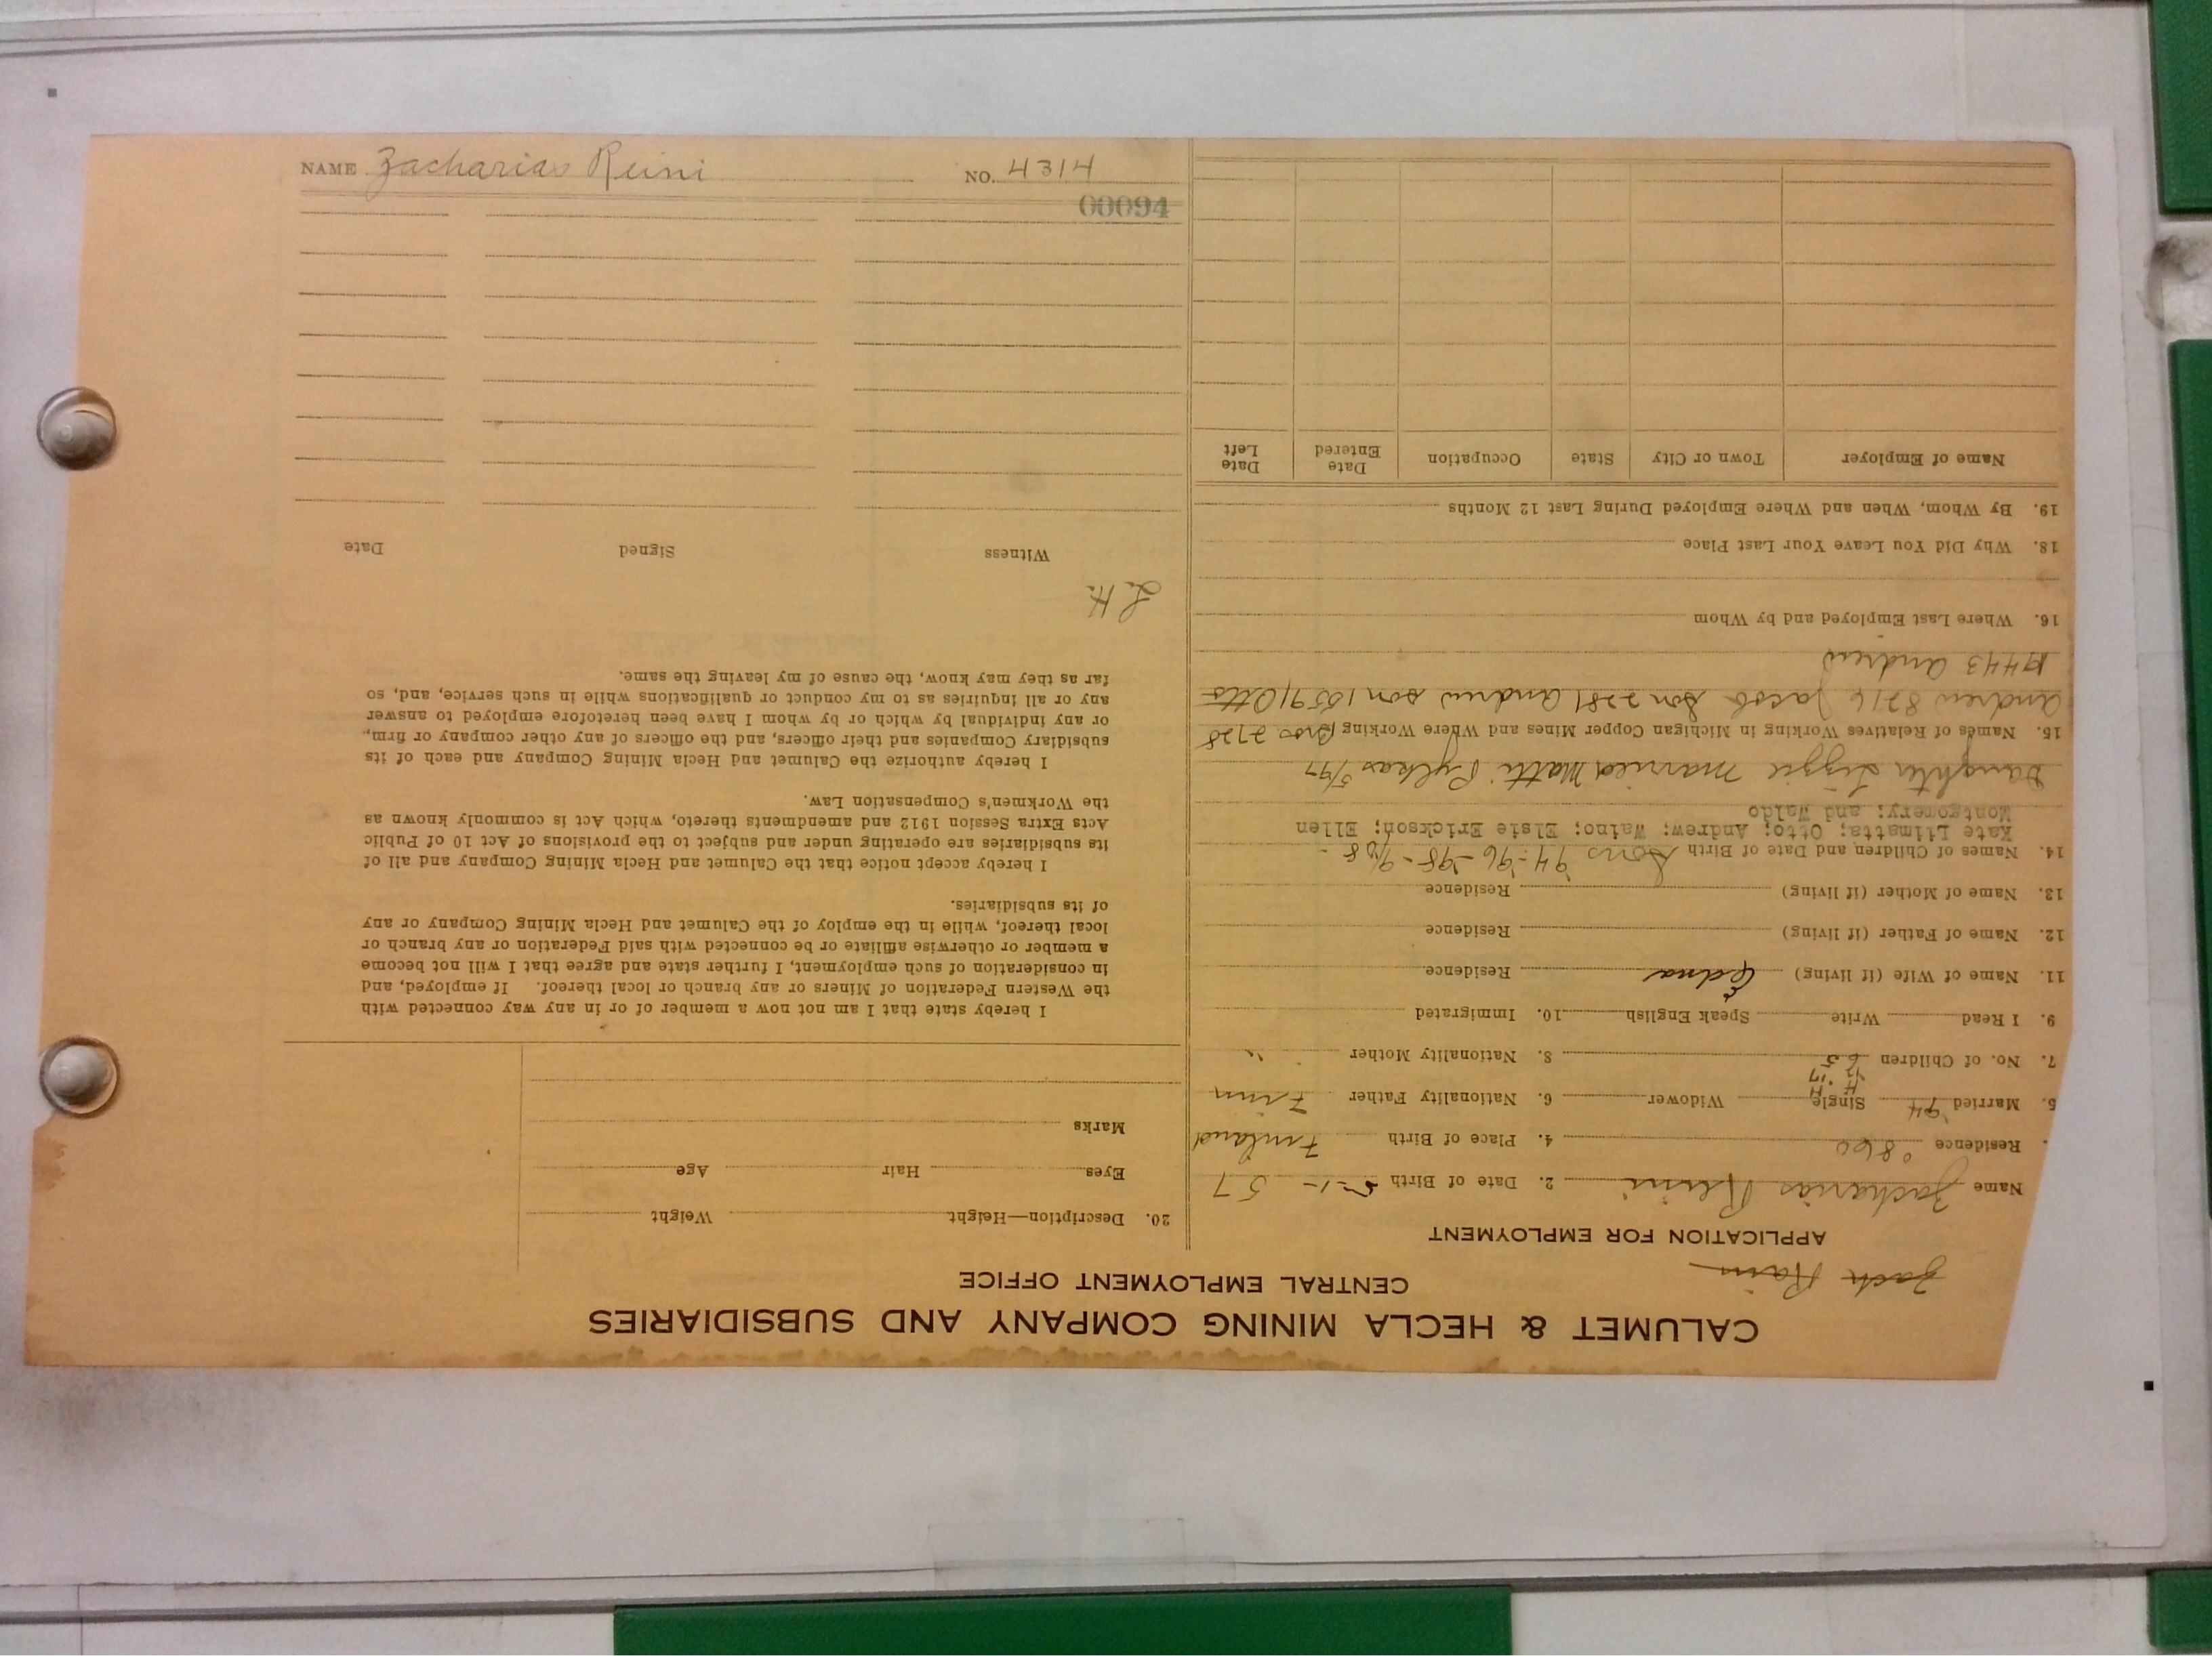 NAME Zacharias Reini NO. 4314
00094
CALUMET & HECLA MINING COMPANY AND SUBSIDIARIES
CENTRAL EMPLOYMENT OFFICE
Zach Rain
APPLICATION FOR EMPLOYMENT
Name Zacharias Reini 2. Date of Birth 5-1-57
Residence 860 4. Place of Birth Finland
5. Married '94 Single Widower 6. Nationality Father Finn
H H
'12 '17
7. No. of Children 6 5 8. Nationality Mother "
9. I Read Write Speak English 10. Immigrated
11. Name of Wife (if living) Edna Residence
12. Name of Father (if living) Residence
13. Name of Mother (if living) Residence
14. Names of Children and Date of Birth Sons 94-96-98-
Kate Liimatta; Otto; Andrew; Waino; Elsie Erickson; Ellen
Montgomery; and Waldo
Daughter Lizzie married Matti Pylkas
15. Names of Relatives Working in Michigan Copper Mines and Where Working Bro 2728
Andrew 8216 Jacob Son 2281 Andrew son 16591 Otto
17443 Andrew
16. Where Last Employed and by Whom
18. Why Did You Leave Your Last Place
19. By Whom, When and Where Employed During Last 12 Months
Name of Employer Town or City State Occupation Date Entered Date Left
20. Description—Height Weight
Eyes Hair Age
Marks
I hereby state that I am not now a member of or in any way connected with
the Western Federation of Miners or any branch or local thereof. If employed, and
in consideration of such employment, I further state and agree that I will not become
a member or otherwise affiliate or be connected with said Federation or any branch or
local thereof, while in the employ of the Calumet and Hecla Mining Company or any
of its subsidiaries.
I hereby accept notice that the Calumet and Hecla Mining Company and all of
its subsidiaries are operating under and subject to the provisions of Act 10 of Public
Acts Extra Session 1912 and amendments thereto, which Act is commonly known as
the Workmen's Compensation Law.
I hereby authorize the Calumet and Hecla Mining Company and each of its
subsidiary Companies and their officers, and the officers of any other company or firm,
or any individual by which or by whom I have been heretofore employed to answer
any or all inquiries as to my conduct or qualifications while in such service, and, so
far as they may know, the cause of my leaving the same.
L.H.
Witness Signed Date